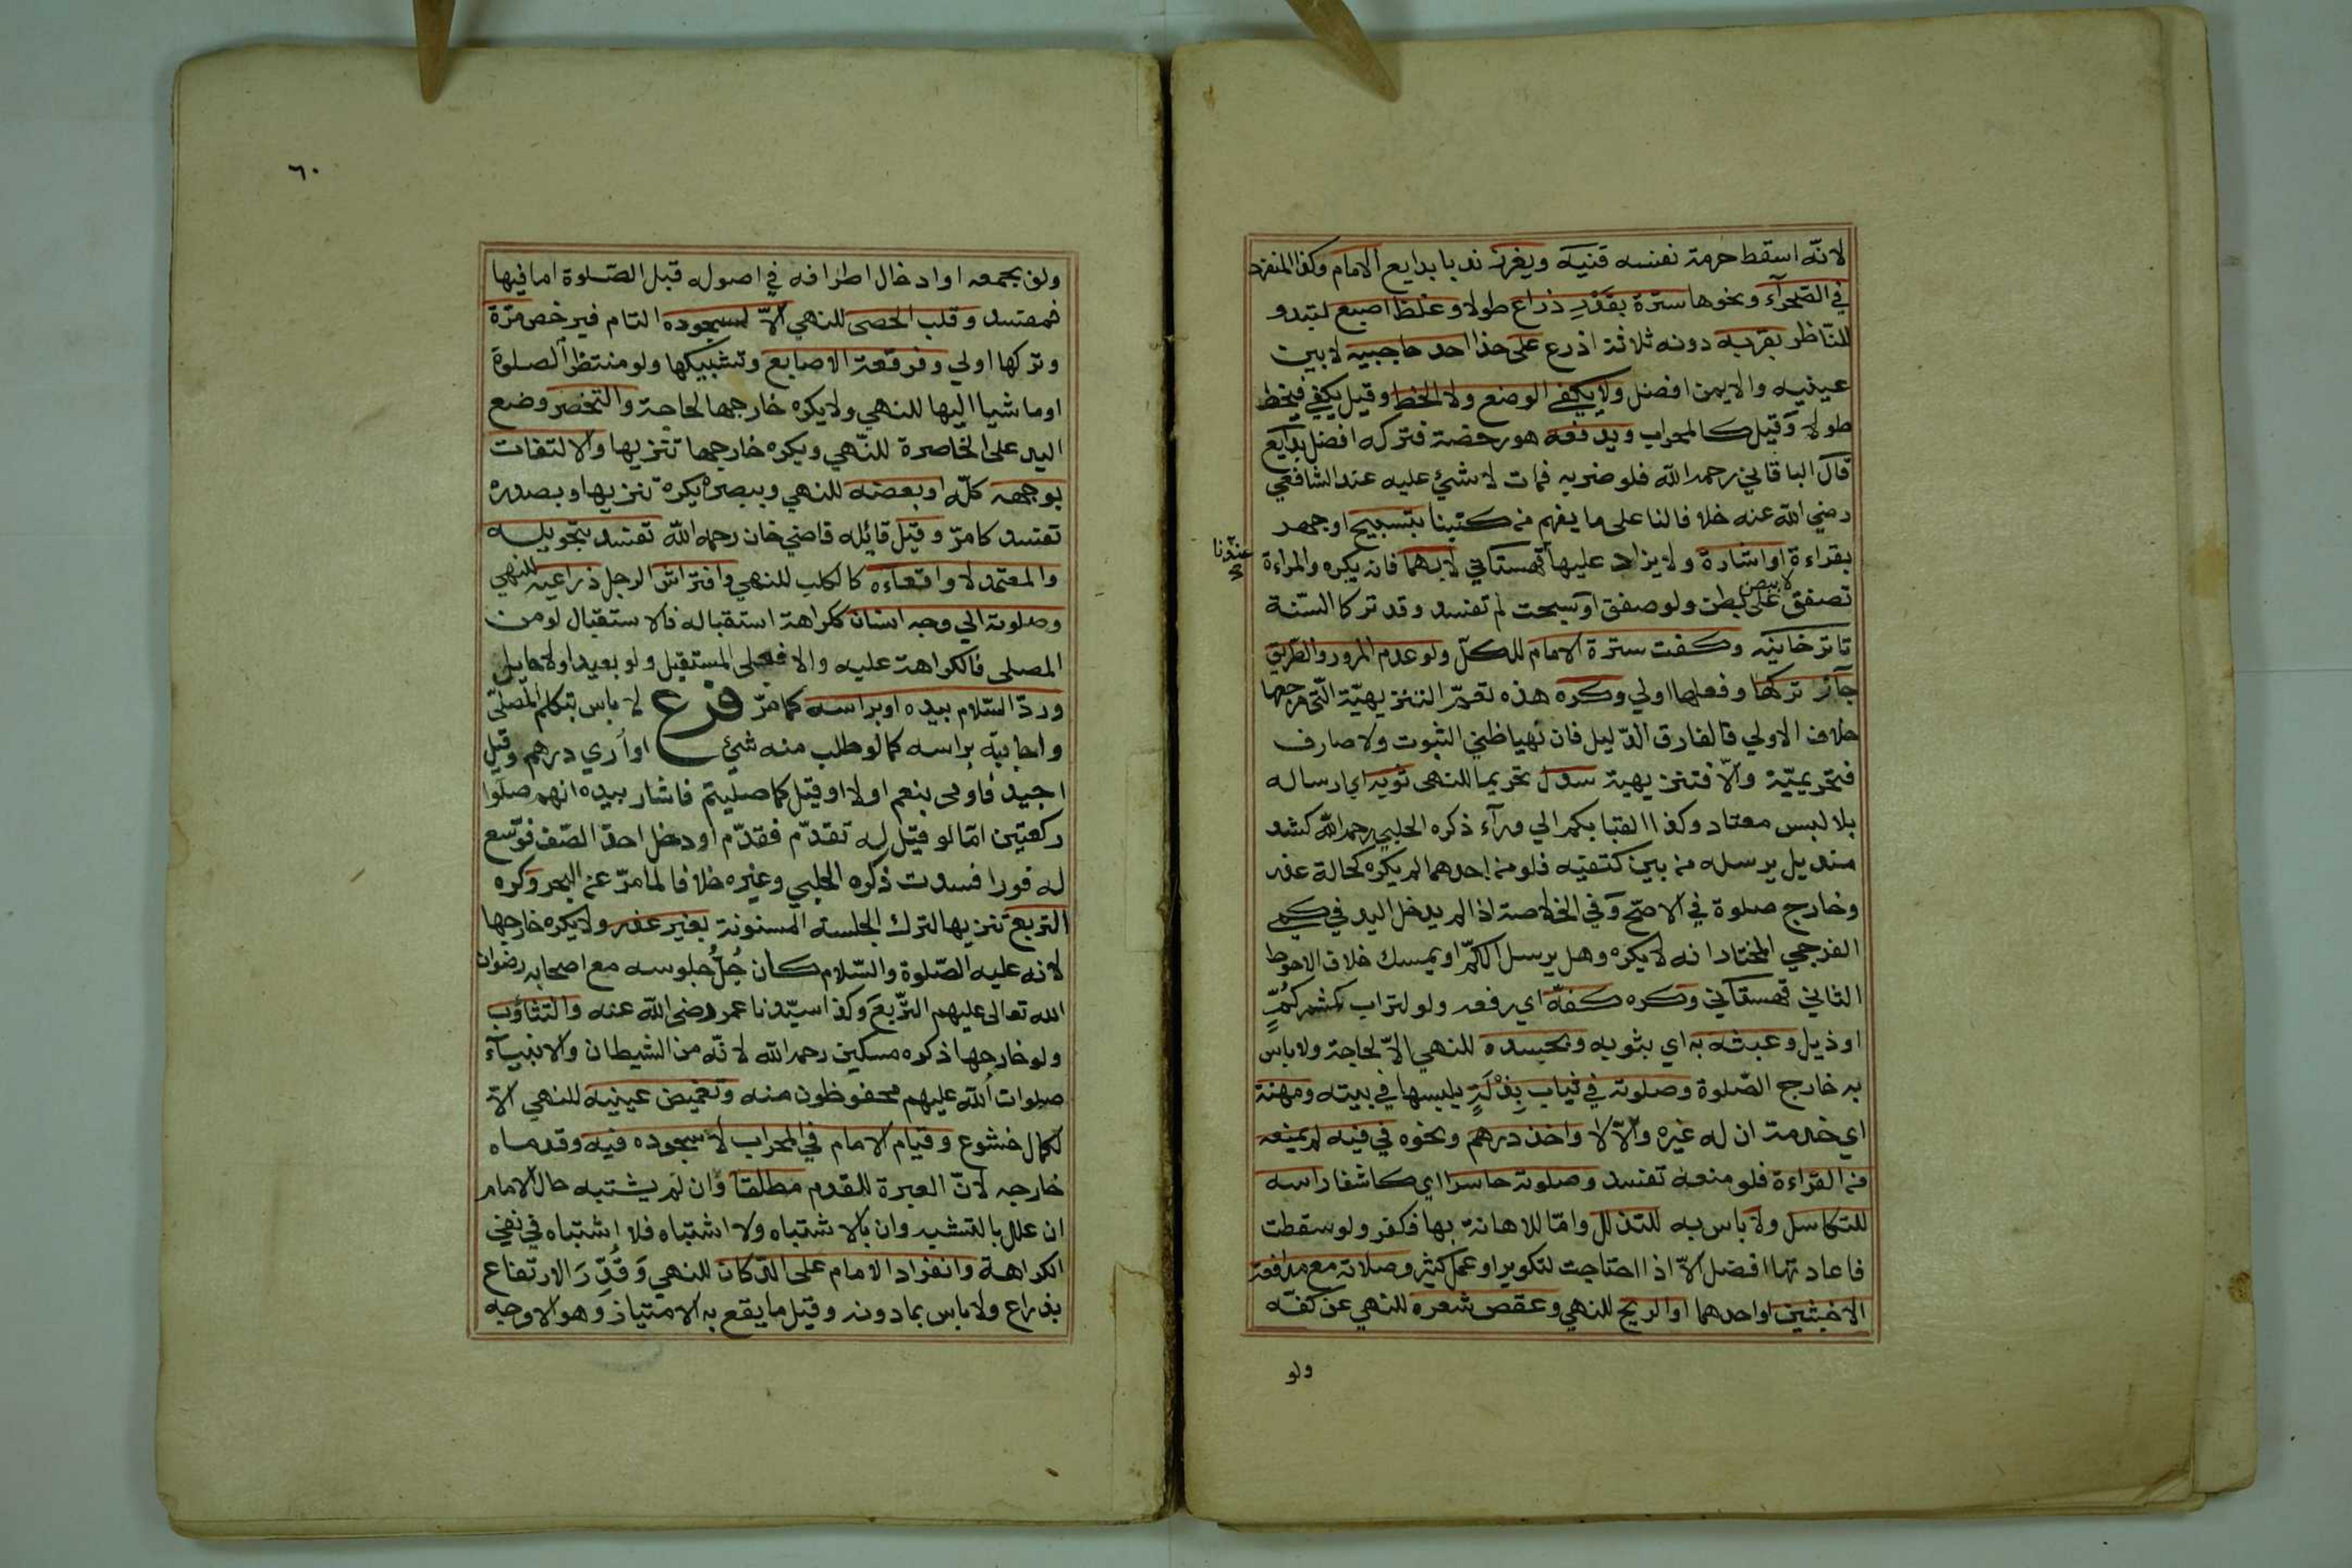 لانّه اسقط حرمة نفسه قنيه ويغرز ندبا بدايع الامام وكذا المنفرد
في الصحرآء ونحوها سترة بقدر ذراع طولا وغلظ اصبع لتبدو
للنّاظر بقربه دونه ثلاثة اذرع على حذا احد حاجبيه لا بين
عينيه والايمن افضل ولا يكفي الوضع ولا الخط وقيل يكفي فيخط
طولا وقيل كالمحراب ويدفعه هو رخصة فتركه افضل بدايع
قال الباقاني رحمه الله فلو ضربه فمات لا شيئ عليه عند الشافعي
رضي الله عنه خلافا لنا على ما يفهم من كتبنا بتسبيح او جهر
بقراءة او اشارة ولا يزاد عليها قهستاني لا بهما فانه يكره والمراءة
عندنا
تصفق لا ببطن على بطن ولو صفق او سبحت لم تفسد وقد تركا السّنة
تاترخانيه وكفت سترة الامام للكلّ ولو عدم المرور والطريق
جاز تركها وفعلها اولي وكره هذه تعمّ التنزيهيّة الّتي مرجعها
خلاف الاولي فالفارق الدّليل فان نهيا ظني الثبوت ولا صارف
فتحريميّة والّا فتنزيهية سدل تحريما للنهى ثوبه اي ارساله
بلا لبس معتاد وكذا القبا بكم الي ورآء ذكره الحلبي رحمه الله كشد
منديل يرسله من بين كتفيه فلو من احدهما لم يكره كحالة عذر
وخارج صلوة في الاصحّ وفي الخلاصة اذا لم يدخل اليد في كمي
الفرجي المختار انه لا يكره وهل يرسل الكمّ او يمسك خلاف الاحوط
الثاني قهستاني وكره كفّه اي رفعه ولو لتراب كمشمر كُمٍّ
او ذيل وعبثه به اي بثوبه وبحسده للنهي الّا لحاجة ولا باس
به خارج الصّلوة وصلوته في ثياب بِذْلَةٍ يلبسها في بيته ومهنة
اي خدمة ان له غيره والّا لا واخذ درهم ونحوه في فيه لم يمنعه
من القراءة فلو منعه تفسد وصلوته حاسرا اي كاشفا راسه
للتكاسل ولا باس به للتذلل وامّا للاهانة بها فكفر ولو سقطت
فاعادتها افضل الّا اذا احتاجت لتكوير او عمل كثير وصلاته مع مدافعة
الاخبثين او احدهما او الريح للنهي وعقص شعره للنهي عن كفّه
ولو
٦٠
ولو بجمعه او ادخال اطرافه في اصوله قبل الصّلوة اما فيها
فمفسد وقلب الحصى للنهي الّا لسجوده التام فيرخص مرّة
وتركها اولي وفرقعة الاصابع وتشبيكها ولو منتظر الصلوة
او ماشيا اليها للنهي ولا يكره خارجها لحاجة والتخصر وضع
اليد على الخاصرة للنّهي ويكره خارجها تنزيها والالتفات
بوجهه كلّه او بعضه للنهي وببصره يكره تنزيها وبصدره
تفسد كما مرّ وقيل قائله قاضي خان رحمه الله تفسد بتحويله
والمعتمد لا واقعآءه كالكلب للنهي وافتراش الرجل ذراعيه للنهي
وصلوته الي وجه انسان ككراهة استقباله فالاستقبال لو من
المصلي فالكراهة عليه والا فعلى المستقبل ولو بعيدا ولا حايل
وردّ السّلام بيده او براسه كما مرّ فرع لا باس بتكلم المصلّى
واجابته براسه كما لو طلب منه شيئ او أري درهم وقيل
اجيد فاومى بنعم او لا او قيل كم صليتم فاشار بيده انهم صلّوا
ركعتين امّا لو قيل له تقدّم فقدّم او دخل احد الصّف فوّسع
له فورا فسدت ذكره الحلبي وغيره خلافا لما مرّ عن البحر وكره
التربع تنزيها لترك الجلسة المسنونة بغير عذر ولا يكره خارجها
لانه عليه الصّلوة والسّلام كان جُلُّ جلوسه مع اصحابه رضوان
الله تعالى عليهم التّربع وكذا سيّدنا عمر رضي الله عنه والتثاؤب
ولو خارجها ذكره مسكين رحمه الله لانّه من الشيطان والانبيآء
صلوات الله عليهم محفوظون منه وتغميض عينيه للنهي الّا
لكمال خشوع وقيام الامام في المحراب لا سجوده فيه وقدماه
خارجه لانّ العبرة للقدم مطلقا وان لم يشتبه حال الامام
ان علل بالتشبه وان بالاشتباه ولا اشتباه فلا اشتباه في نفي
الكراهة وانفراد الامام على الدّكان للنهي وَقُدِّرَ الارتفاع
بذراع ولا باس بما دونه وقيل ما يقع به الامتياز وهو الاوجه